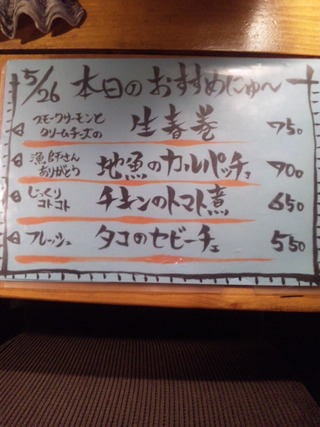 5/26 本日のおすすめにゅ〜
スモークサーモンと
クリームチーズの 生春巻 750
漁師さん
ありがとう 地魚のカルパッチョ 900
じっくり
コトコト チキンのトマト煮 650
フレッシュ タコのセビーチェ 550